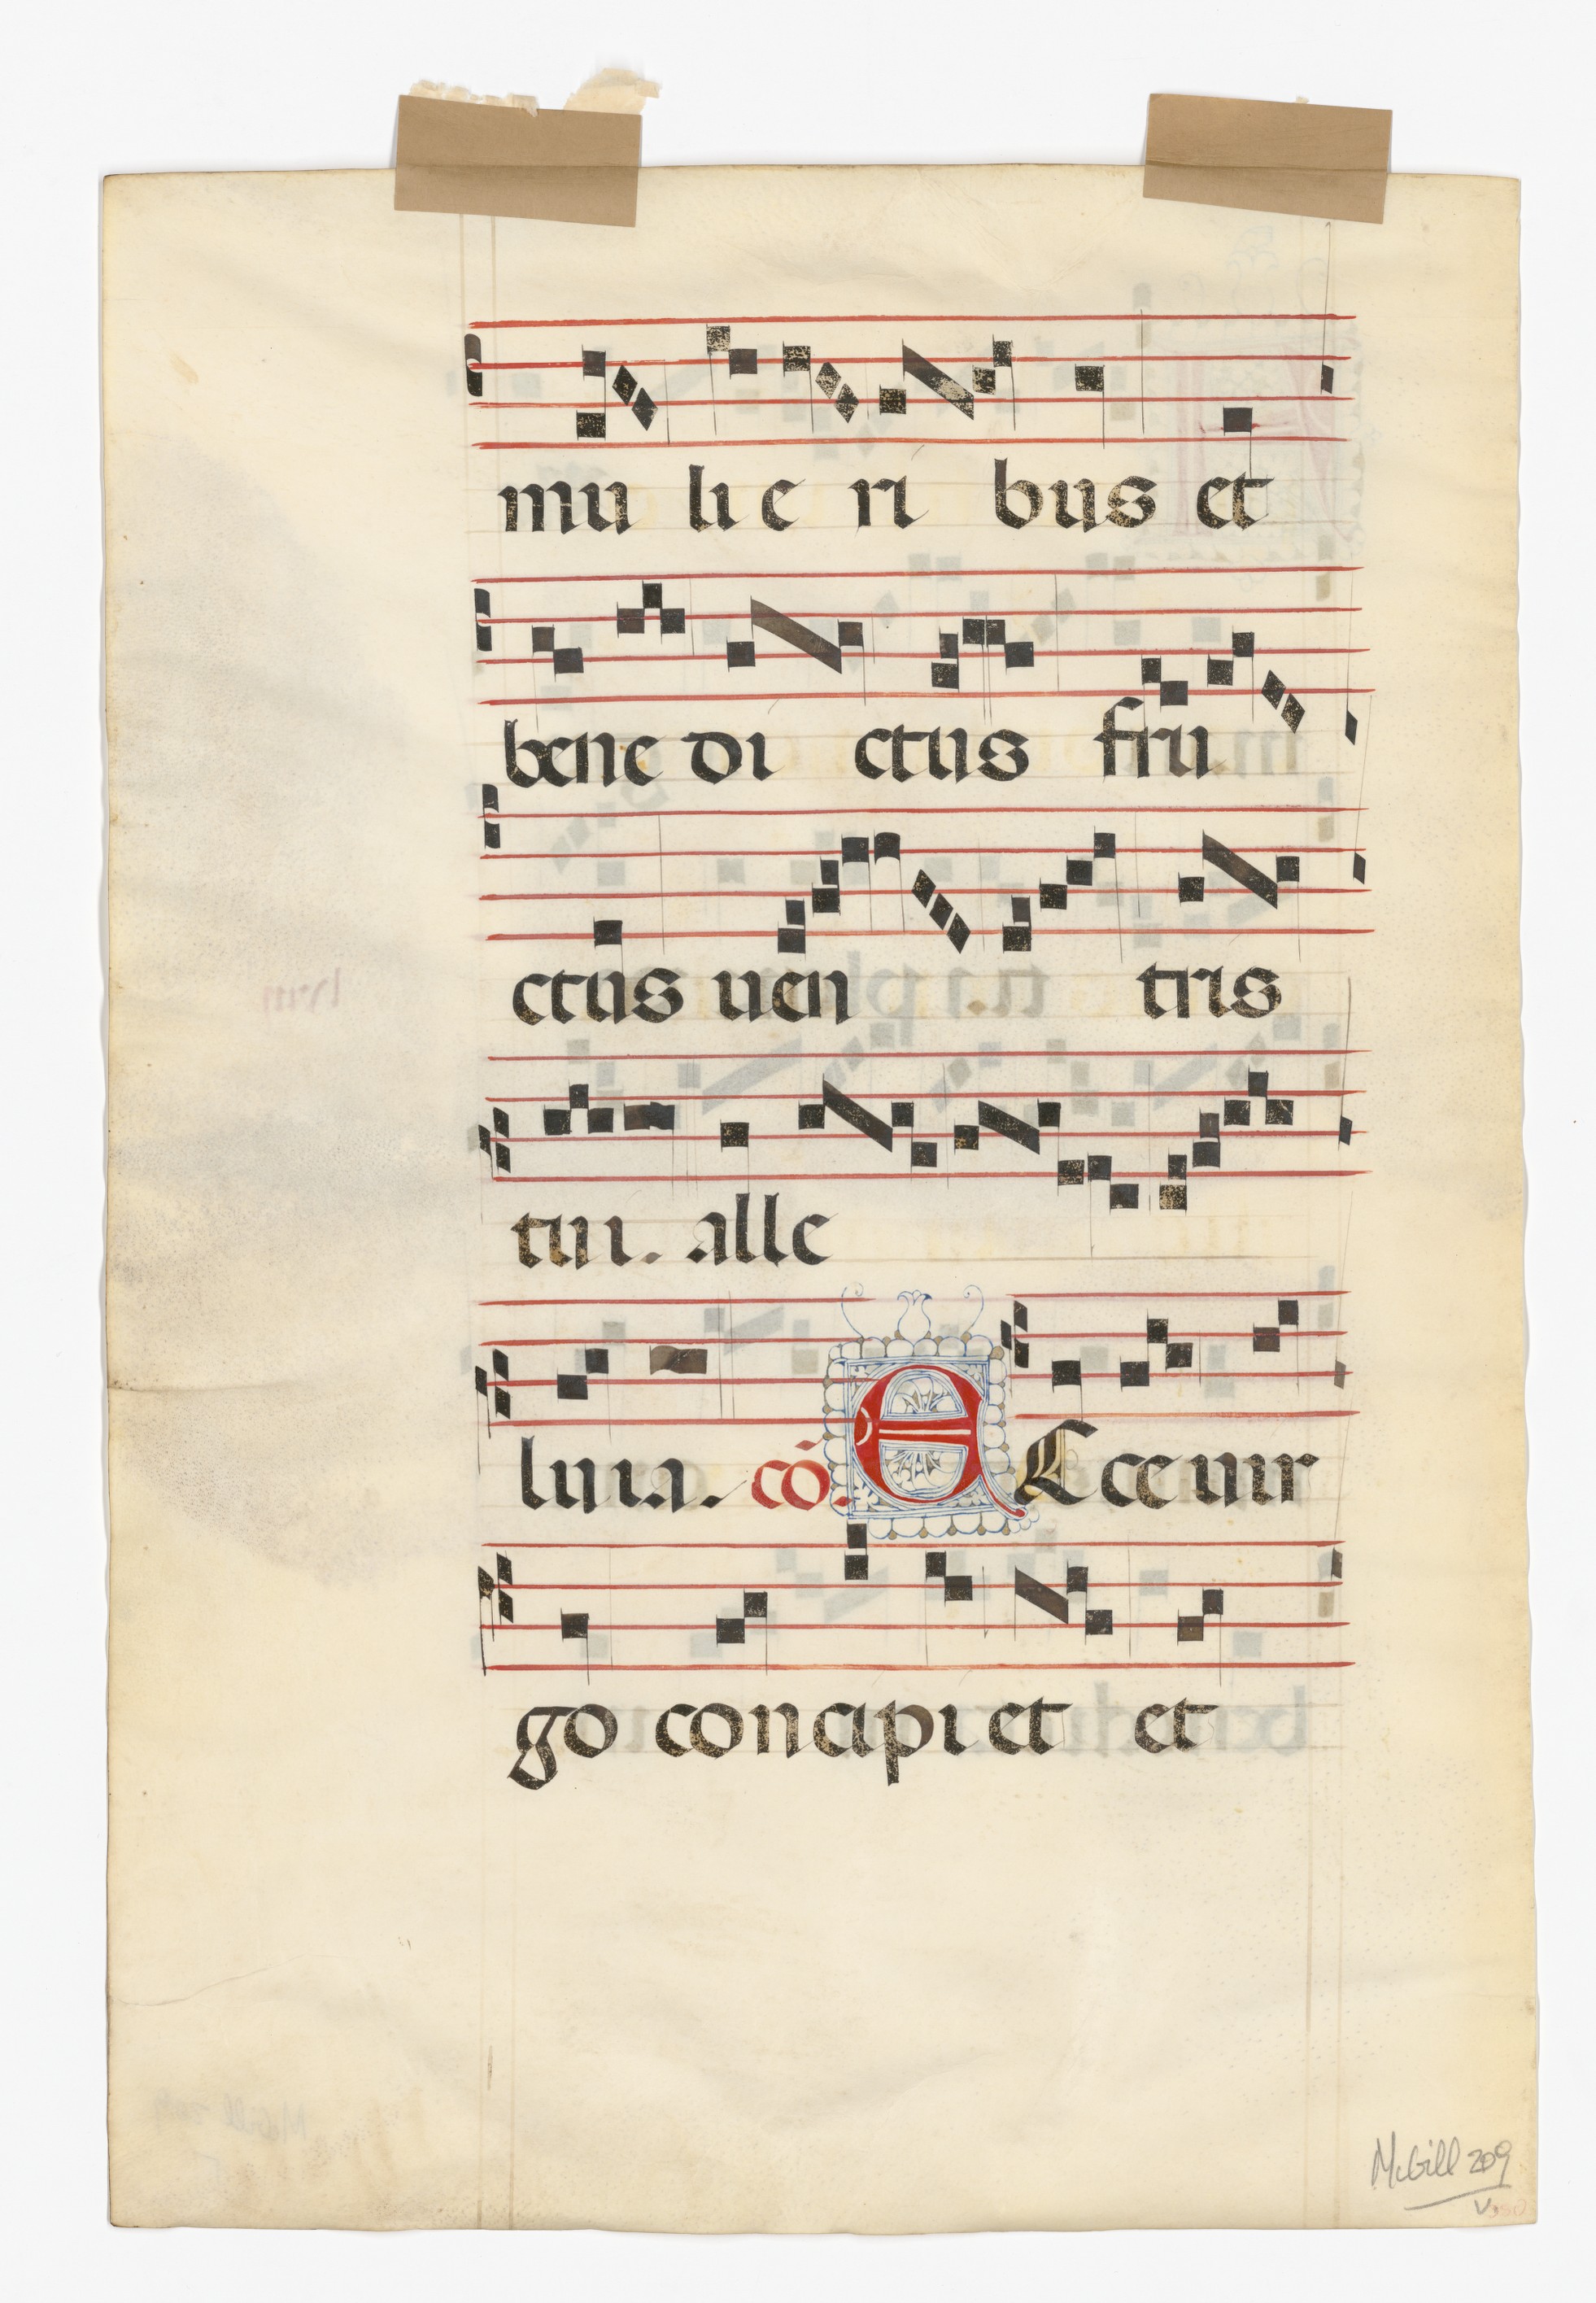 mu li e ri bus et
bene di ctus fru
ctus uen tris
tui. alle
luia. cō. E Ecce uir
go concipi et et
McGill 209
v